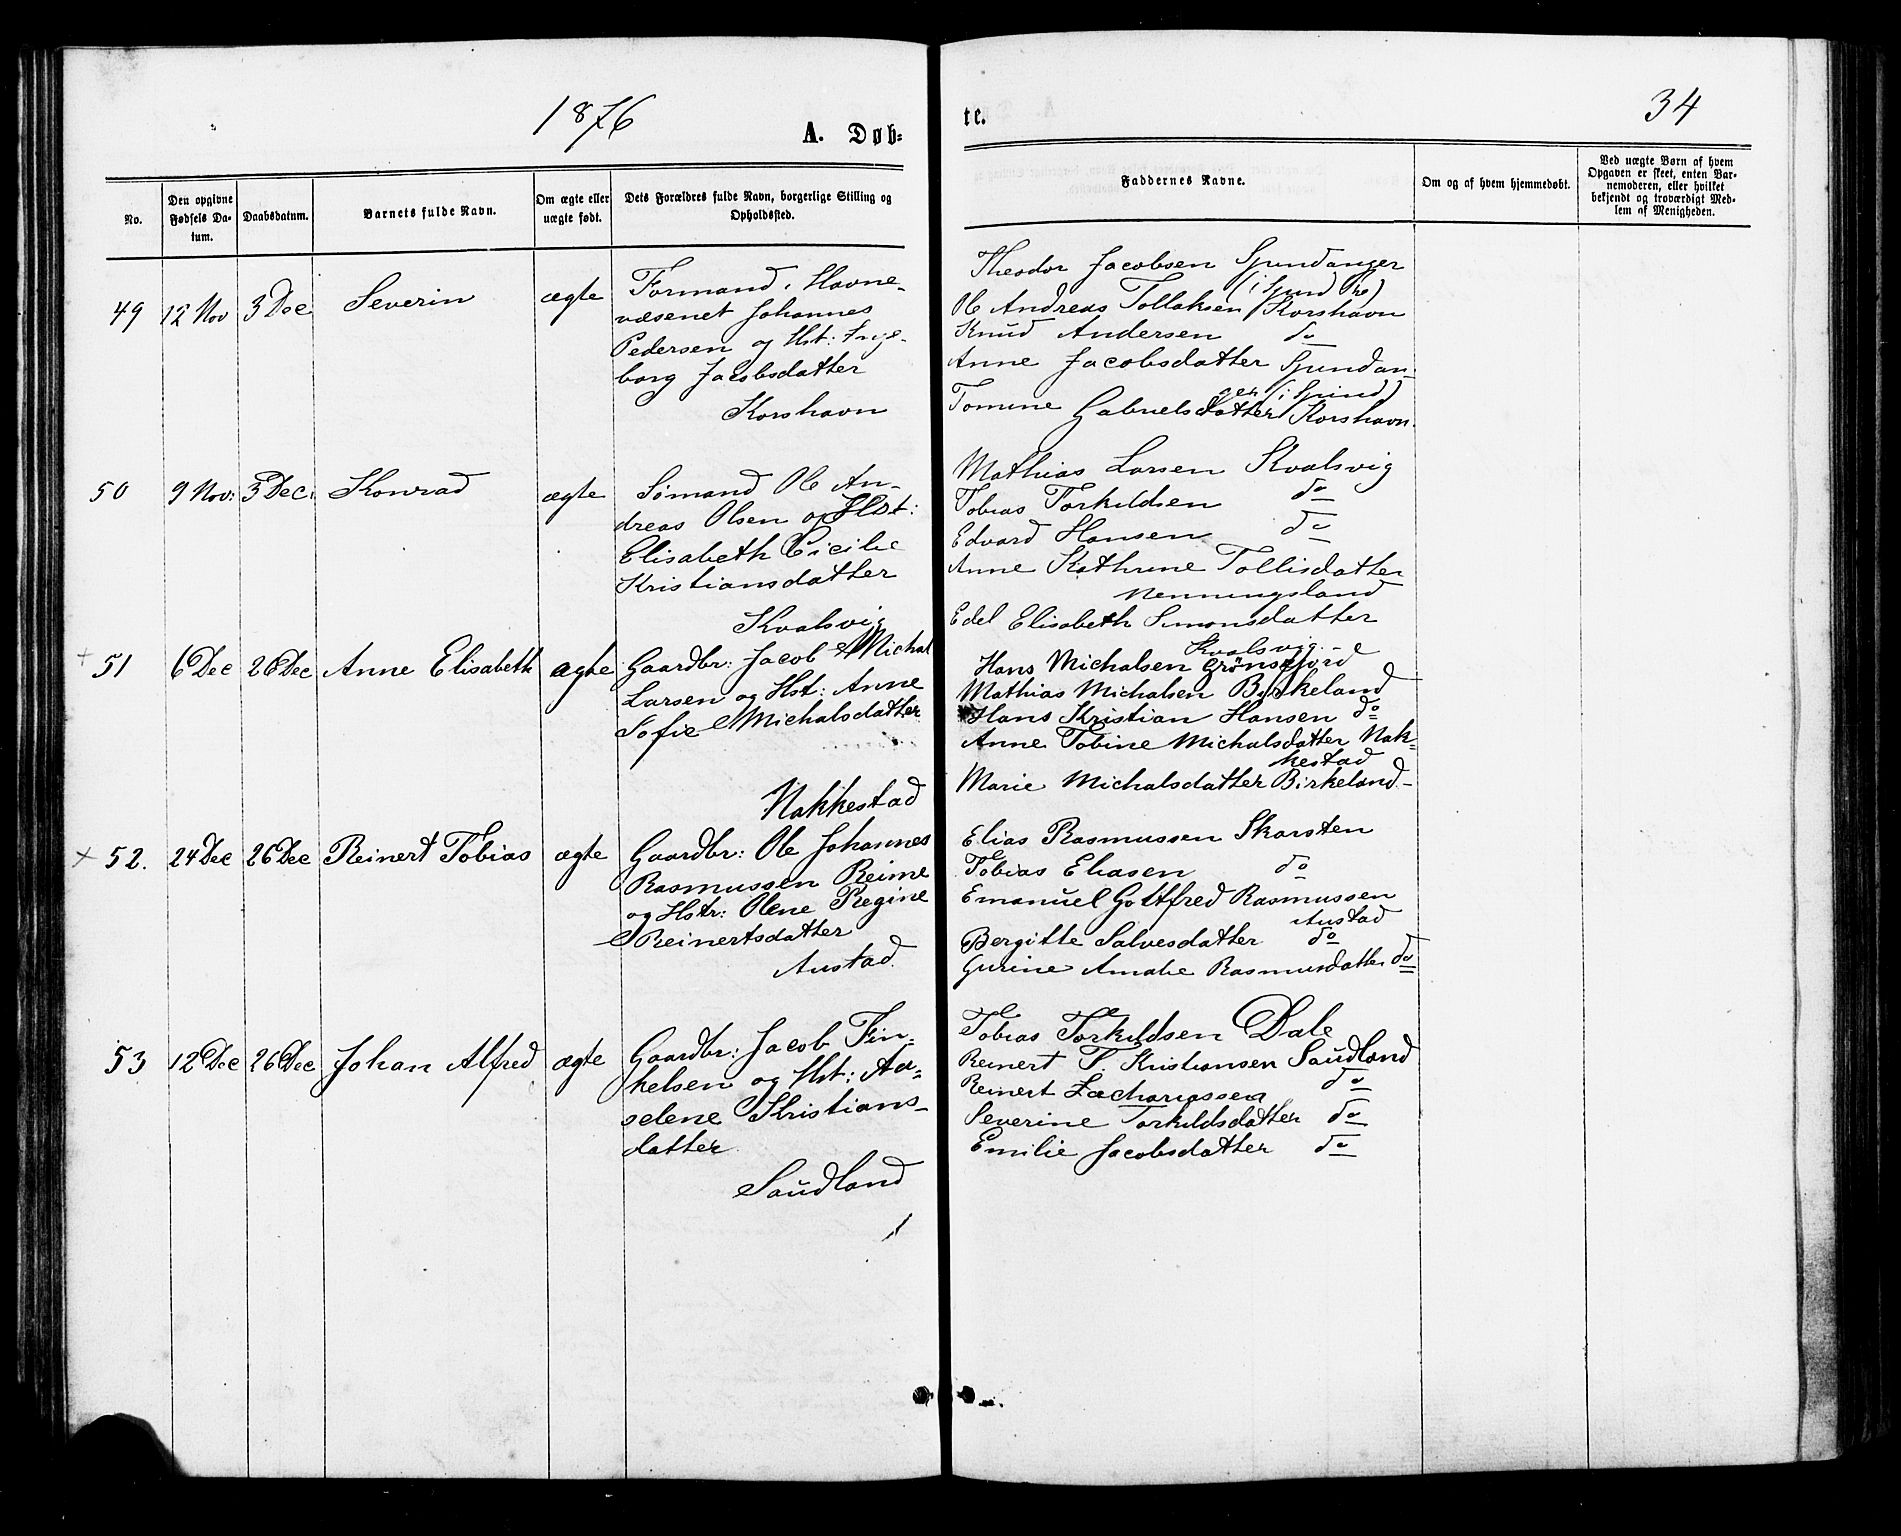 1876
A. Døb=
No.
Den opgivne Fødsels Da-
tum.
Daabsdatum.
Barnets fulde Navn.
Om ægte eller uægte født.
Dets Forældres fulde Navn, borgerlige Stilling og
Opholdsted.
49 12 Nov 3 Dec Severin ægte Formand i Havne-
væsenet Johannes
Pedersen og Hst: Inge-
borg Jacobsdatter
Korshavn
50 9 Nov: 3 Dec. Konrad ægte Sømand Ole An-
dreas Olsen og Hst:
Elisabeth Cicilie
Kristiansdatter
Kvalsvig
+ 51 6 Dec 26 Dec Anne Elisabeth ægte Gaardbr: Jacob Michal
Larsen og Hst: Anne
Sofie Michalsdatter
Nakkestad
+ 52. 24 Dec 26 Dec Reinert Tobias ægte Gaardbr: Ole Johannes
Rasmussen Reime
og Hstr: Olene Regine
Reinertsdatter
Austad.
53 12 Dec 26 Dec Johan Alfred ægte Gaardbr: Jacob Fin-
kelsen og Hst: Aa-
selene Kristians-
datter
Saudland
te.
34
Faddernes Navne.
Om og af hvem hjemmedøbt.
Ved uægte Børn af hvem
Opgaven er skeet, enten Bar-
nemoderen, eller hvilket
bekjendt og troværdigt Med-
lem af Menigheden.
Theodor Jacobsen Spindanger
(i Spind
Ole Andreas Tollaksen Korshavn
Knud Andersen do
Anne Jacobsdatter Spindan-
ger (i Spind)
Tomine Gabrielsdatter Korshavn.
Mathias Larsen Kvalsvig
Tobias Torkildsen do
Edvard Hansen do
Anne Kathrine Tollisdatter
Nenningsland
Edel Elisabeth Simonsdatter
Kvalsvig.-
Hans Michalsen Grønsfjord
Mathias Michalsen Birkeland
Hans Kristian Hansen do
Anne Tobine Michalsdatter Nak-
kestad
Marie Michalsdatter Birkeland-
Elias Rasmussen Skarsten
Tobias Eliasen do
Emanuel Gottfred Rasmussen
Austad
Bergitte Salvesdatter do
Gurine Amalie Rasmusdatter do
Tobias Torkildsen Dale
Reinert T. Kristiansen Saudland
Reinert Zachariassen do
Severine Torkildsdatter do
Emilie Jacobsdatter do